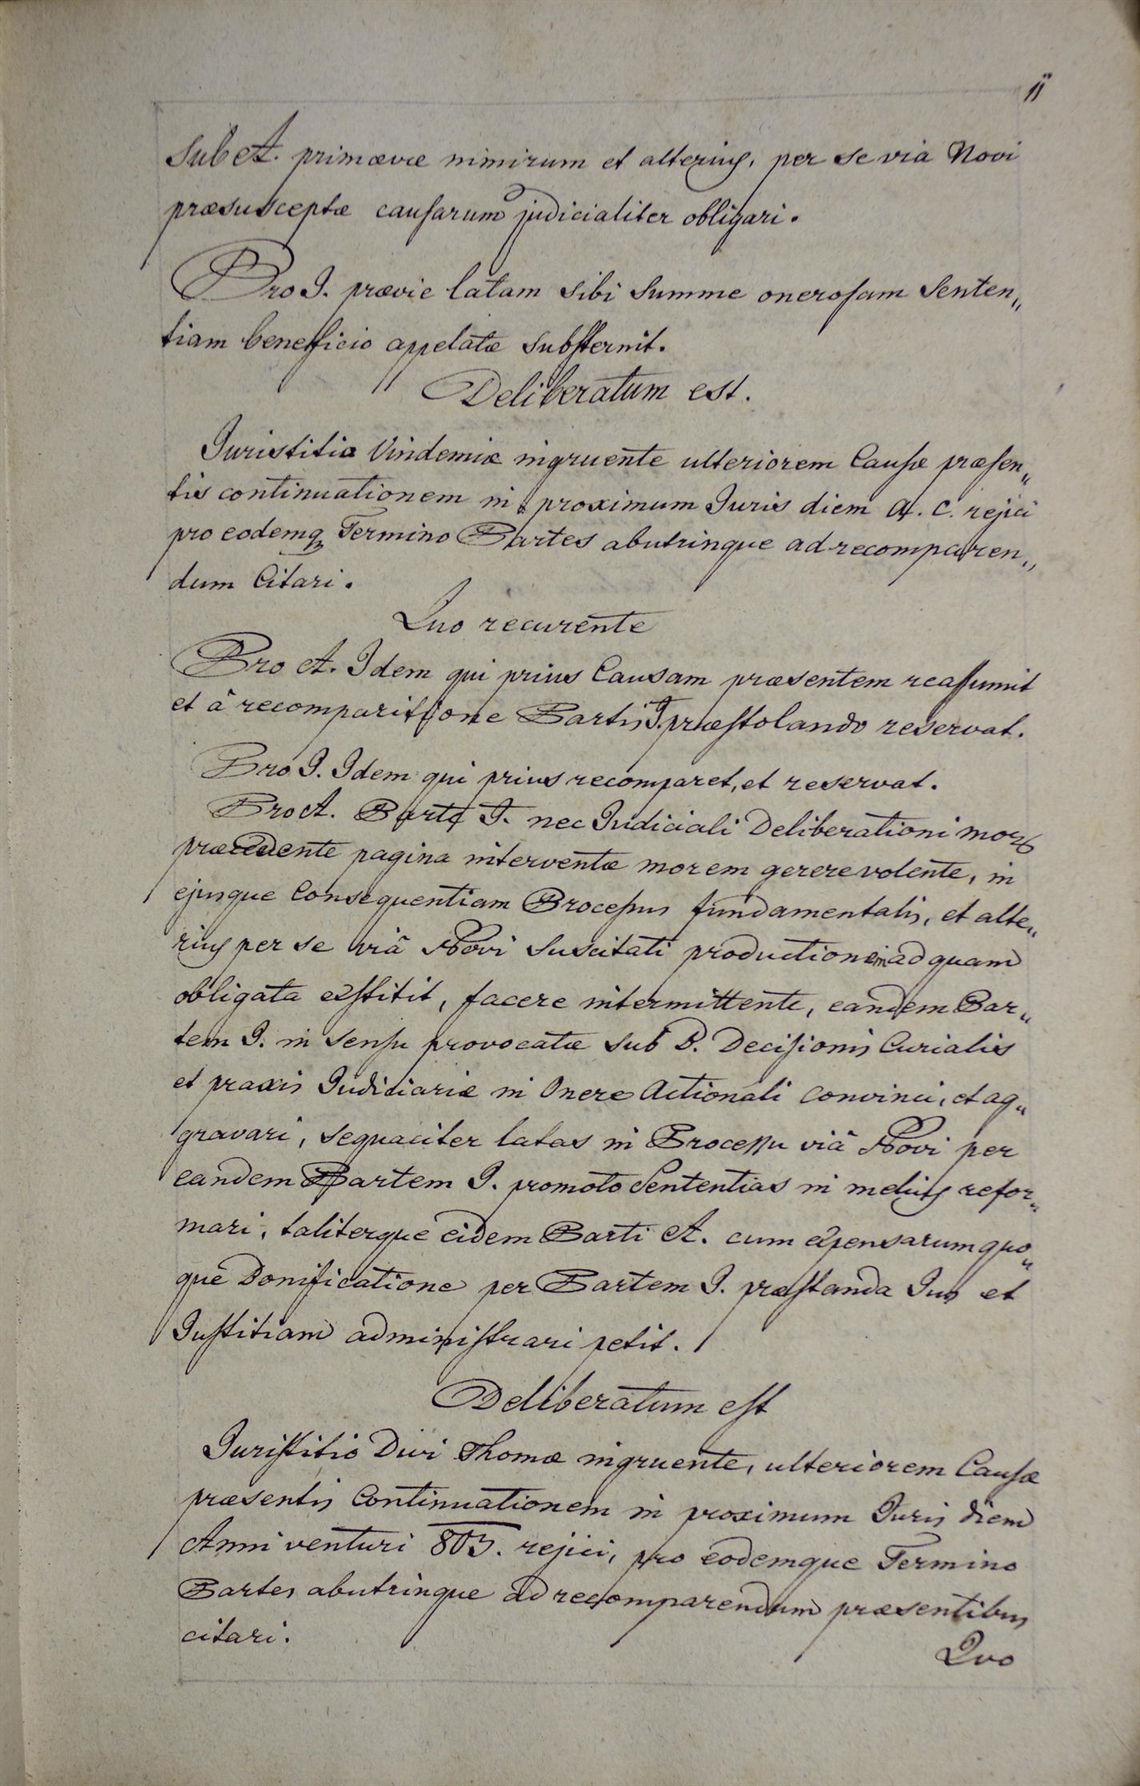 11
Sub A. primævæ nimirum et alterius, per se via Novi
præsusceptæ causarum judicialiter obligari.
Pro I. prævie latam sibi Summe onerosam Senten„
tiam beneficio appelatæ substernit.
Deliberatum est.
Juristitia Vindemiæ ingruente ulteriorem Causæ præsen„
tis continuationem in proximum Juris diem A. C. rejici
pro eodemq Termino Partes abutrinque ad recomparen„
dum Citari.
Quo recurente
Pro A. Idem qui prius Causam præsentem reassumit
et â recomparitione Partis I. præstolando reservat.
Pro I. Idem qui prius recomparet, et reservat.
Pro A. Parte I. nec Judiciali Deliberationi
præcedente pagina interventæ morem gerere volente, in
ejusque Consequentiam Processus fundamentalis, et alte„
rius per se viâ Novi Suscitati productionem ad quam
obligata exstitit, facere intermittente, eandem Par„
tem I. in Sensu provocatæ Sub B. Decisionis Curialis
et praxis Judiciariæ in Onere Actionali convinci, et ag„
gravari, sequaciter latas in Processu viâ Novi per
eandem Partem I. promoto Sententias in melius refor„
mari, taliterque eidem Parti A. cum expensarum quo„
que Bonificatione per Partem I. præstanda Jus et
Justitiam administrari petit.
Deliberatum est
Juristitio Divi Thomæ ingruente, ulteriorem Causæ
præsentis Continuationem in proximum Juris diem
Anni venturi 803. rejici, pro eodemque Termino
Partes abutrinque ad recomparendum præsentibus
citari.
Quo